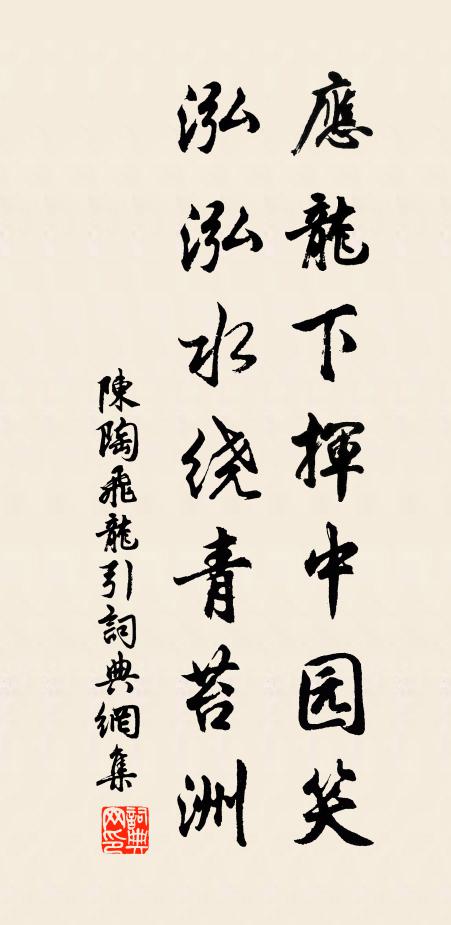 應龍下揮中园笑
泓泓水绕青苔洲
陳陶飛龍引詞典網集
詞典網印